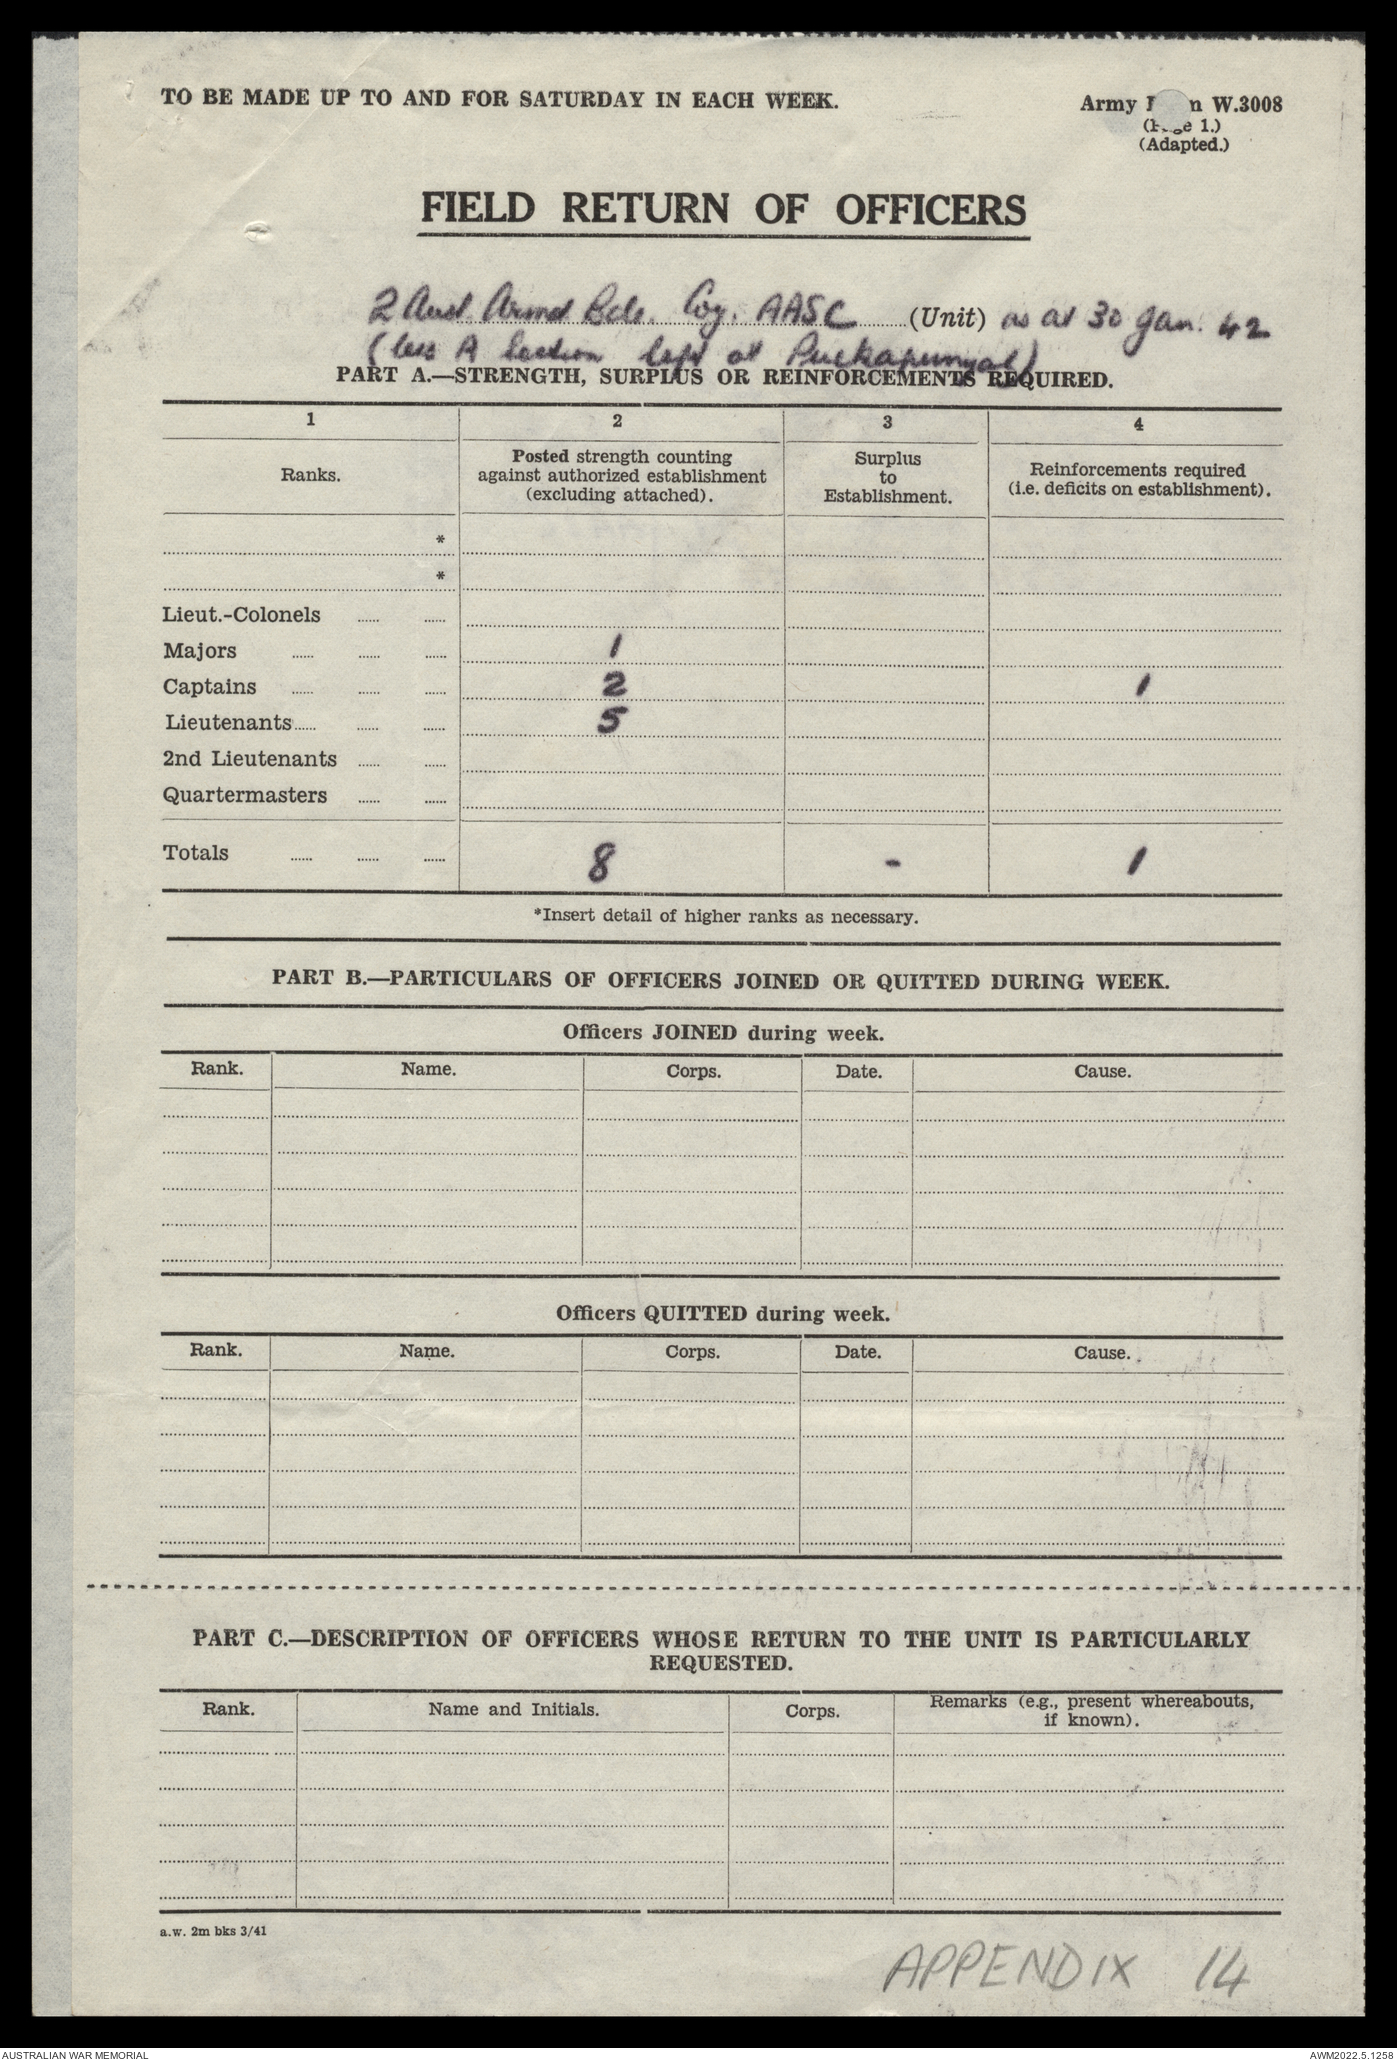 TO BE MADE UP TO AND FOR SATURDAY IN EACH WEEK.
Army F n W.3008
(Page 1.)
(Adapted.)
FIELD RETURN OF OFFICERS
2 Aust Armd Bde. Coy. AASC (Unit) as at 30 Jan. 42
(less A Section left at Puckapunyal)
PART A.—STRENGTH, SURPLUS OR REINFORCEMENTS REQUIRED.
1 2 3 4
Ranks.
Posted strength counting
against authorized establishment
(excluding attached).
Surplus
to
Establishment.
Reinforcements required
(i.e. deficits on establishment).
*
*
Lieut.-Colonels ...... ......
Majors ...... ...... ...... 1
Captains ...... ...... ...... 2 1
Lieutenants ...... ...... ...... 5
2nd Lieutenants ...... ......
Quartermasters ...... ......
Totals ...... ...... ...... 8 - 1
*Insert detail of higher ranks as necessary.
PART B.—PARTICULARS OF OFFICERS JOINED OR QUITTED DURING WEEK.
Officers JOINED during week.
Rank. Name. Corps. Date. Cause.
Officers QUITTED during week.
Rank. Name. Corps. Date. Cause.
PART C.—DESCRIPTION OF OFFICERS WHOSE RETURN TO THE UNIT IS PARTICULARLY
REQUESTED.
Rank. Name and Initials. Corps.
Remarks (e.g., present whereabouts,
if known).
a.w. 2m bks 3/41
APPENDIX 14
AUSTRALIAN WAR MEMORIAL
AWM2022.5.1258